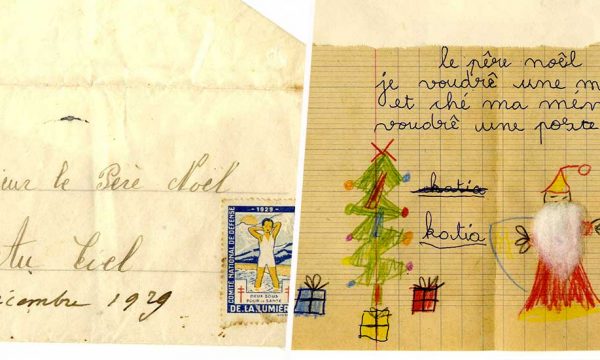 ieur le Père Noël
Au Ciel
écembre 1929
1929
COMITÉ NATIONAL DE DÉFENSE
DEUX SOUS
POUR LA SANTÉ
DE LA LUMIÈRE
le père noël
je voudrê une m
et ché ma mém
voudrê une poste
katia
katia